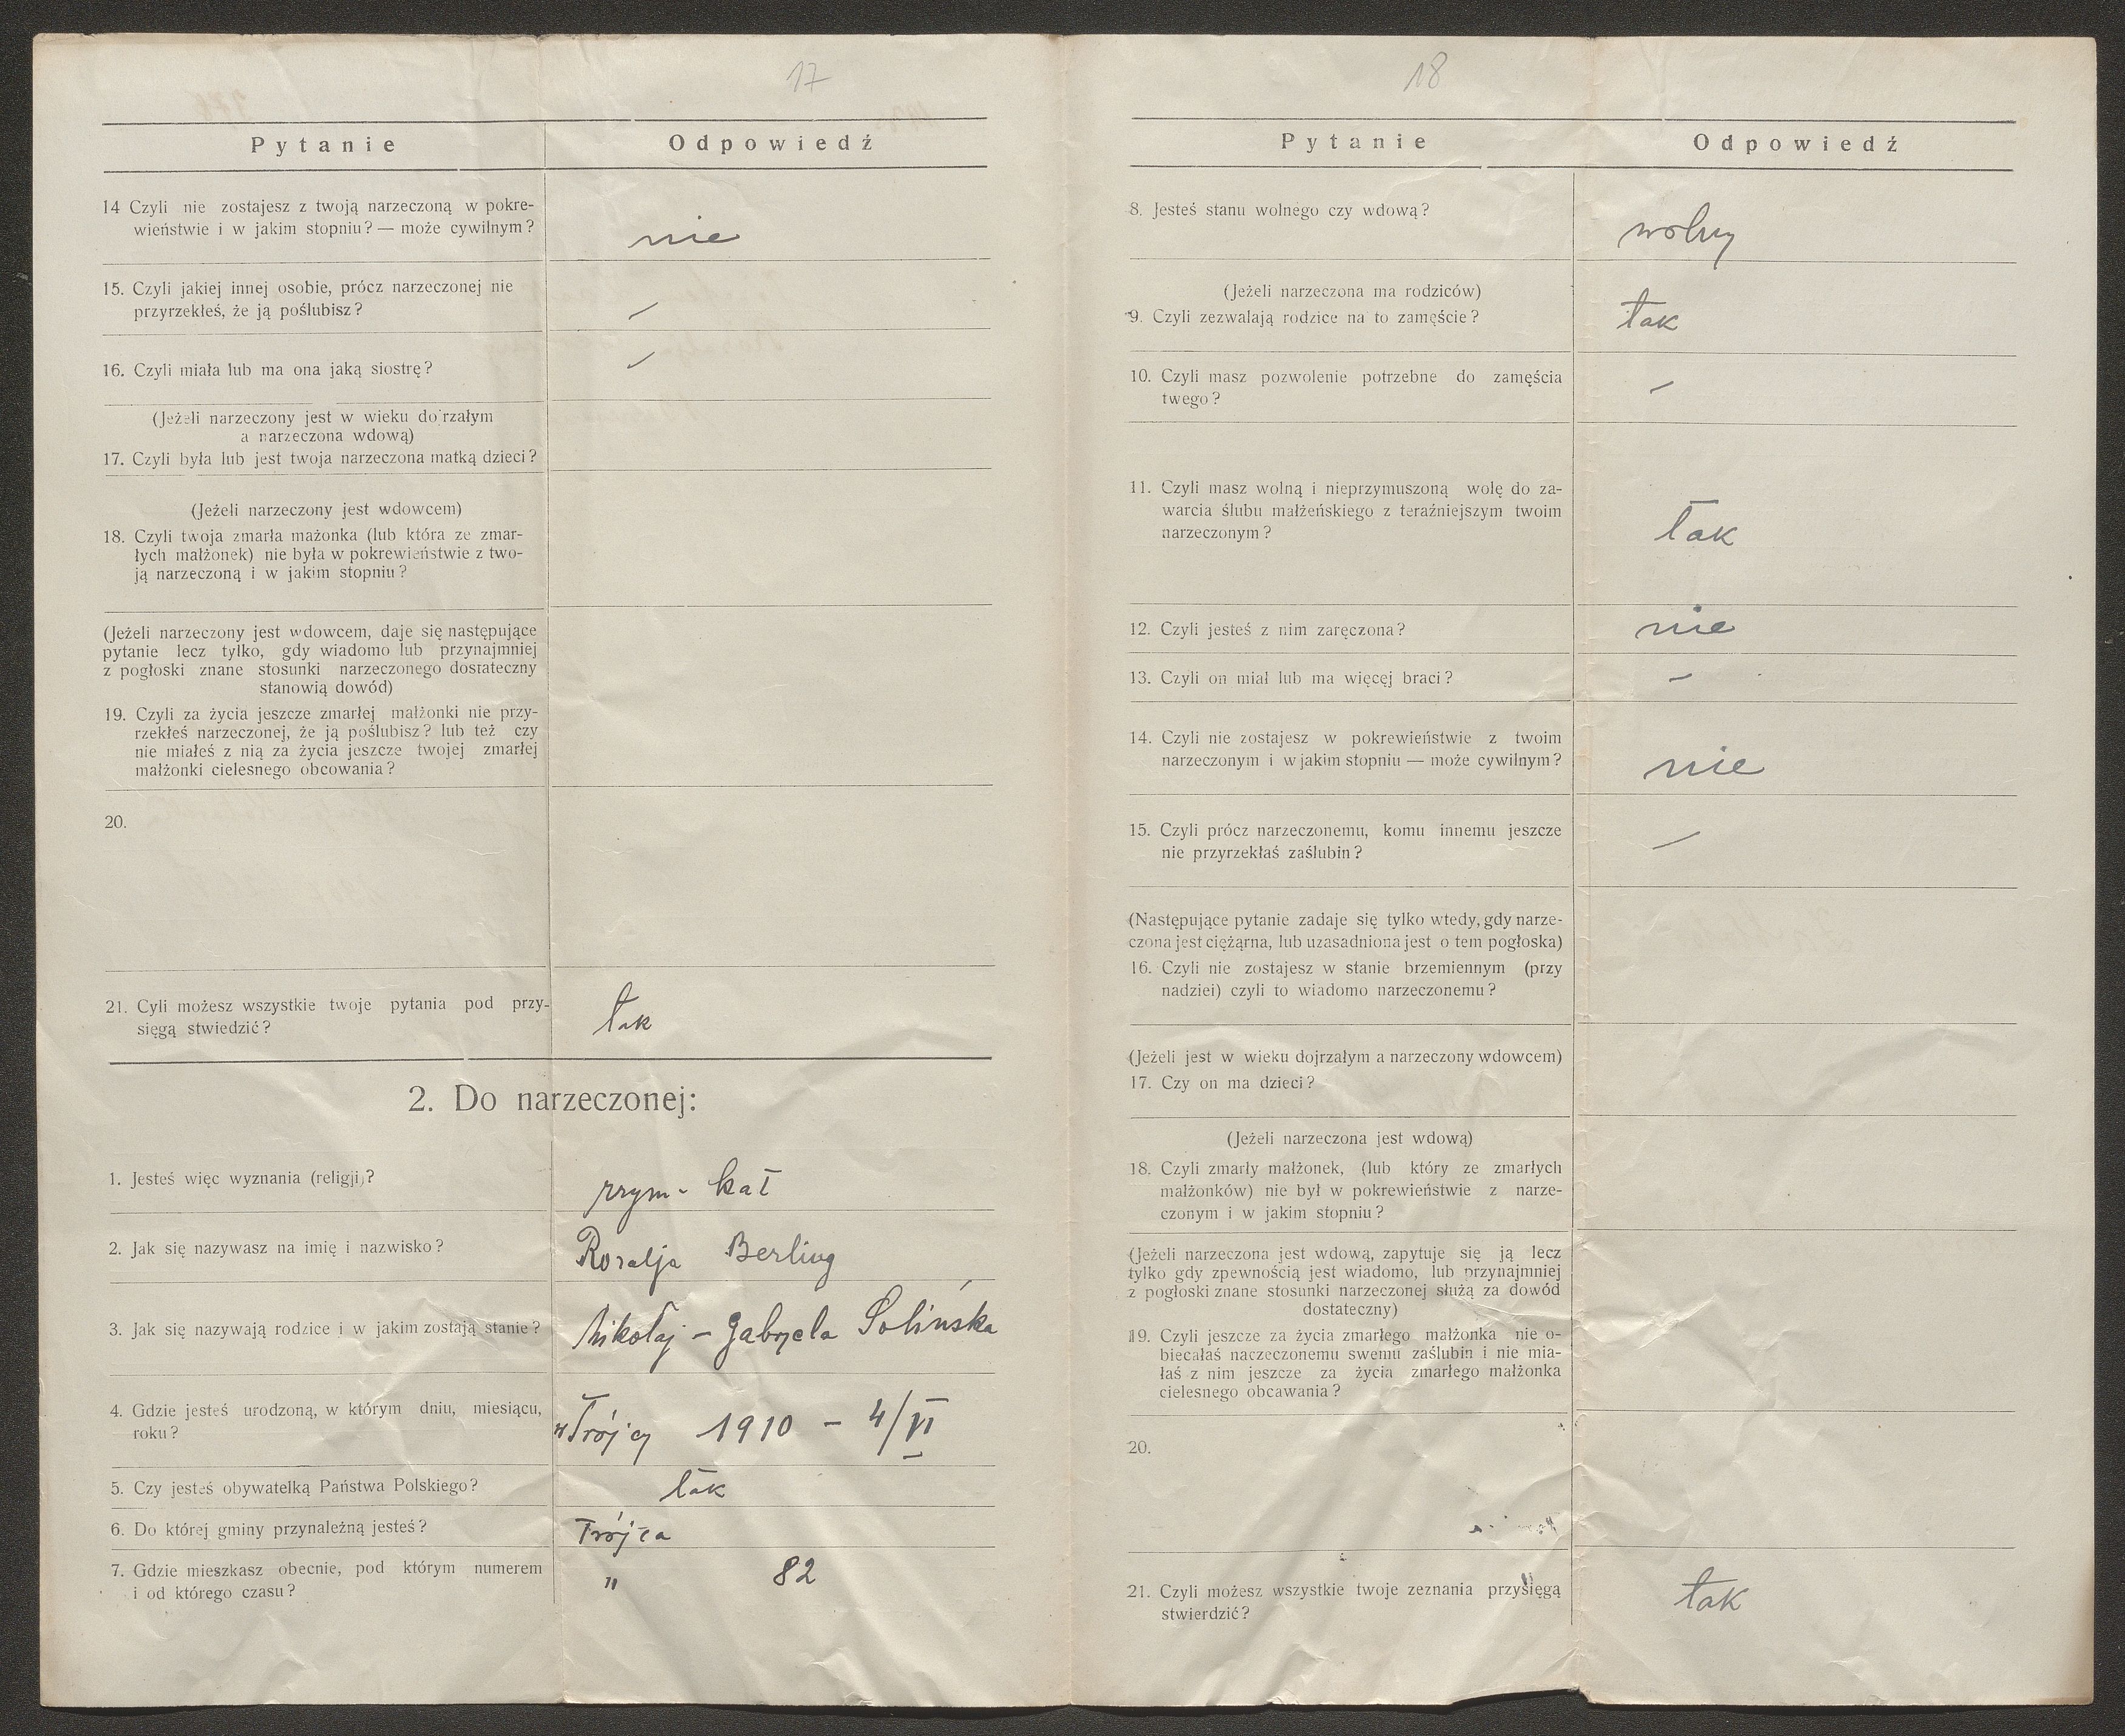 17
Pytanie
Odpowiedź
14 Czyli nie zostajesz z twoją narzeczoną w pokre-
wieństwie i w jakim stopniu? — może cywilnym?
nie
15. Czyli jakiej innej osobie, prócz narzeczonej nie
przyrzekłeś, że ją poślubisz?
—
16. Czyli miała lub ma ona jaką siostrę?
—
(Jeżeli narzeczony jest w wieku dojrzałym
a narzeczona wdową)
17. Czyli była lub jest twoja narzeczona matką dzieci?
(Jeżeli narzeczony jest wdowcem)
18. Czyli twoja zmarła mażonka (lub która ze zmar-
łych małżonek) nie była w pokrewieństwie z two-
ją narzeczoną i w jakim stopniu?
(Jeżeli narzeczony jest wdowcem, daje się następujące
pytanie lecz tylko, gdy wiadomo lub przynajmniej
z pogłoski znane stosunki narzeczonego dostateczny
stanowią dowód)
19. Czyli za życia jeszcze zmarłej małżonki nie przy-
rzekłeś narzeczonej, że ją poślubisz? lub też czy
nie miałeś z nią za życia jeszcze twojej zmarłej
małżonki cielesnego obcowania?
20.
21. Cyli możesz wszystkie twoje pytania pod przy-
sięgą stwiedzić?
tak
2. Do narzeczonej:
1. Jesteś więc wyznania (religji)?
rzym- kat
2. Jak się nazywasz na imię i nazwisko?
Rozalja Berling
3. Jak się nazywają rodzice i w jakim zostają stanie?
Mikołaj - Gabryela Solińska
4. Gdzie jesteś urodzoną, w którym dniu, miesiącu,
roku?
w Trójcy 1910 - 4/VI
5. Czy jesteś obywatelką Państwa Polskiego?
tak
6. Do której gminy przynależną jesteś?
Trójca
7. Gdzie mieszkasz obecnie, pod którym numerem
i od którego czasu?
" 82
18
Pytanie
Odpowiedź
8. Jesteś stanu wolnego czy wdową?
wolny
(Jeżeli narzeczona ma rodziców)
9. Czyli zezwalają rodzice na to zamęście?
tak
10. Czyli masz pozwolenie potrzebne do zamęścia
twego?
—
11. Czyli masz wolną i nieprzymuszoną wolę do za-
warcia ślubu małżeńskiego z teraźniejszym twoim
narzeczonym?
tak
12. Czyli jesteś z nim zaręczona?
nie
13. Czyli on miał lub ma więcej braci?
—
14. Czyli nie zostajesz w pokrewieństwie z twoim
narzeczonym i w jakim stopniu — może cywilnym?
nie
15. Czyli prócz narzeczonemu, komu innemu jeszcze
nie przyrzekłaś zaślubin?
—
(Następujące pytanie zadaje się tylko wtedy, gdy narze-
czona jest ciężarna, lub uzasadniona jest o tem pogłoska)
16. Czyli nie zostajesz w stanie brzemiennym (przy
nadziei) czyli to wiadomo narzeczonemu?
(Jeżeli jest w wieku dojrzałym a narzeczony wdowcem)
17. Czy on ma dzieci?
(Jeżeli narzeczona jest wdową)
18. Czyli zmarły małżonek, (lub który ze zmarłych
małżonków) nie był w pokrewieństwie z narze-
czonym i w jakim stopniu?
(Jeżeli narzeczona jest wdową, zapytuje się ją lecz
tylko gdy zpewnością jest wiadomo, lub przynajmniej
z pogłoski znane stosunki narzeczonej służą za dowód
dostateczny)
19. Czyli jeszcze za życia zmarłego małżonka nie o-
biecałaś naczeczonemu swemu zaślubin i nie mia-
łaś z nim jeszcze za życia zmarłego małżonka
cielesnego obcawania?
20.
21. Czyli możesz wszystkie twoje zeznania przysięgą
stwierdzić?
tak